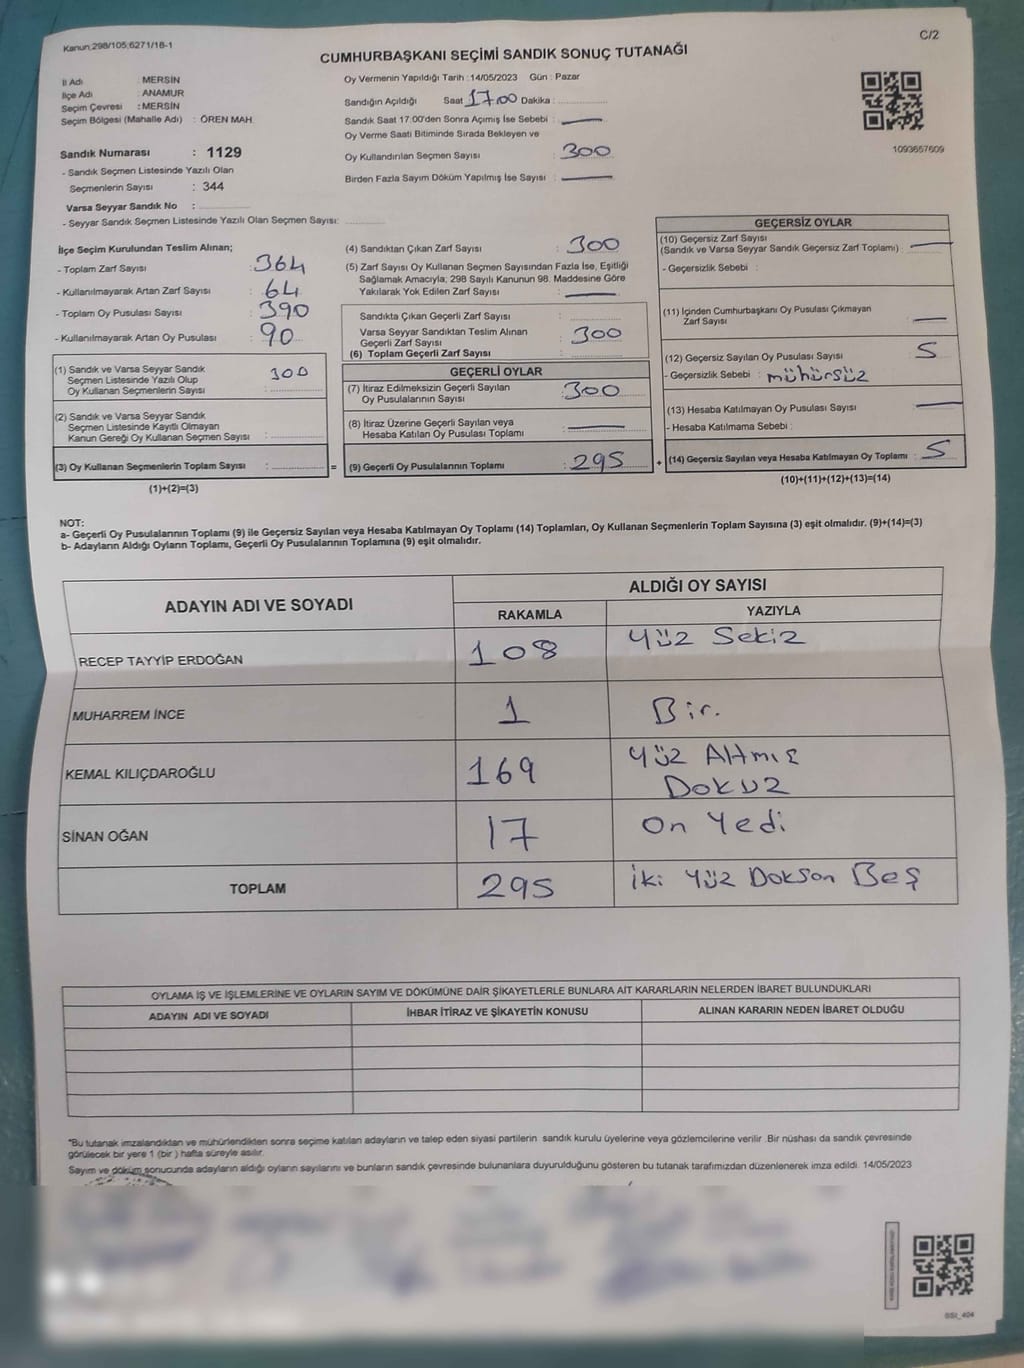 Kanun:298/105;6271/18-1
C/2
CUMHURBAŞKANI SEÇİMİ SANDIK SONUÇ TUTANAĞI
İl Adı : MERSİN
İlçe Adı : ANAMUR
Seçim Çevresi : MERSİN
Seçim Bölgesi (Mahalle Adı) : ÖREN MAH.
Sandık Numarası : 1129
- Sandık Seçmen Listesinde Yazılı Olan
Seçmenlerin Sayısı : 344
Varsa Seyyar Sandık No :
- Seyyar Sandık Seçmen Listesinde Yazılı Olan Seçmen Sayısı:
Oy Vermenin Yapıldığı Tarih :14/05/2023 Gün : Pazar
Sandığın Açıldığı Saat 17.00 Dakika :
Sandık Saat 17.00'den Sonra Açımış İse Sebebi : —
Oy Verme Saati Bitiminde Sırada Bekleyen ve
Oy Kullandırılan Seçmen Sayısı : 300
Birden Fazla Sayım Döküm Yapılmış İse Sayısı : —
1093657609
İlçe Seçim Kurulundan Teslim Alınan;
- Toplam Zarf Sayısı : 364
- Kullanılmayarak Artan Zarf Sayısı : 64
- Toplam Oy Pusulası Sayısı : 390
- Kullanılmayarak Artan Oy Pusulası : 90
(1) Sandık ve Varsa Seyyar Sandık
Seçmen Listesinde Yazılı Olup
Oy Kullanan Seçmenlerin Sayısı : 300
(2) Sandık ve Varsa Seyyar Sandık
Seçmen Listesinde Kayıtlı Olmayan
Kanun Gereği Oy Kullanan Seçmen Sayısı :
(3) Oy Kullanan Seçmenlerin Toplam Sayısı : =
(1)+(2)=(3)
(4) Sandıktan Çıkan Zarf Sayısı : 300
(5) Zarf Sayısı Oy Kullanan Seçmen Sayısından Fazla İse, Eşitliği
Sağlamak Amacıyla; 298 Sayılı Kanunun 98. Maddesine Göre
Yakılarak Yok Edilen Zarf Sayısı : —
Sandıkta Çıkan Geçerli Zarf Sayısı :
Varsa Seyyar Sandıktan Teslim Alınan
Geçerli Zarf Sayısı : 300
(6) Toplam Geçerli Zarf Sayısı :
GEÇERLİ OYLAR
(7) İtiraz Edilmeksizin Geçerli Sayılan
Oy Pusulalarının Sayısı : 300
(8) İtiraz Üzerine Geçerli Sayılan veya
Hesaba Katılan Oy Pusulası Toplamı : —
(9) Geçerli Oy Pusulalarının Toplamı : 295 +
GEÇERSİZ OYLAR
(10) Geçersiz Zarf Sayısı
(Sandık ve Varsa Seyyar Sandık Geçersiz Zarf Toplamı) : —
- Geçersizlik Sebebi :
(11) İçinden Cumhurbaşkanı Oy Pusulası Çıkmayan
Zarf Sayısı : —
(12) Geçersiz Sayılan Oy Pusulası Sayısı : 5
- Geçersizlik Sebebi : mühürsüz
(13) Hesaba Katılmayan Oy Pusulası Sayısı : —
- Hesaba Katılmama Sebebi :
(14) Geçersiz Sayılan veya Hesaba Katılmayan Oy Toplamı : 5
(10)+(11)+(12)+(13)=(14)
NOT:
a- Geçerli Oy Pusulalarının Toplamı (9) ile Geçersiz Sayılan veya Hesaba Katılmayan Oy Toplamı (14) Toplamları, Oy Kullanan Seçmenlerin Toplam Sayısına (3) eşit olmalıdır. (9)+(14)=(3)
b- Adayların Aldığı Oyların Toplamı, Geçerli Oy Pusulalarının Toplamına (9) eşit olmalıdır.
ADAYIN ADI VE SOYADI
ALDIĞI OY SAYISI
RAKAMLA YAZIYLA
RECEP TAYYİP ERDOĞAN 108 Yüz Sekiz
MUHARREM İNCE 1 Bir.
KEMAL KILIÇDAROĞLU 169 Yüz Altmış
Dokuz
SİNAN OĞAN 17 On Yedi
TOPLAM 295 İki Yüz Dokson Beş
OYLAMA İŞ VE İŞLEMLERİNE VE OYLARIN SAYIM VE DÖKÜMÜNE DAİR ŞİKAYETLERLE BUNLARA AİT KARARLARIN NELERDEN İBARET BULUNDUKLARI
ADAYIN ADI VE SOYADI İHBAR İTİRAZ VE ŞİKAYETİN KONUSU ALINAN KARARIN NEDEN İBARET OLDUĞU
*Bu tutanak imzalandıktan ve mühürlendikten sonra seçime katılan adayların ve talep eden siyasi partilerin sandık kurulu üyelerine veya gözlemcilerine verilir. Bir nüshası da sandık çevresinde
görülecek bir yere 1 (bir ) hafta süreyle asılır.
Sayım ve döküm sonucunda adayların aldığı oyların sayılarını ve bunların sandık çevresinde bulunanlara duyurulduğunu gösteren bu tutanak tarafımızdan düzenlenerek imza edildi. 14/05/2023